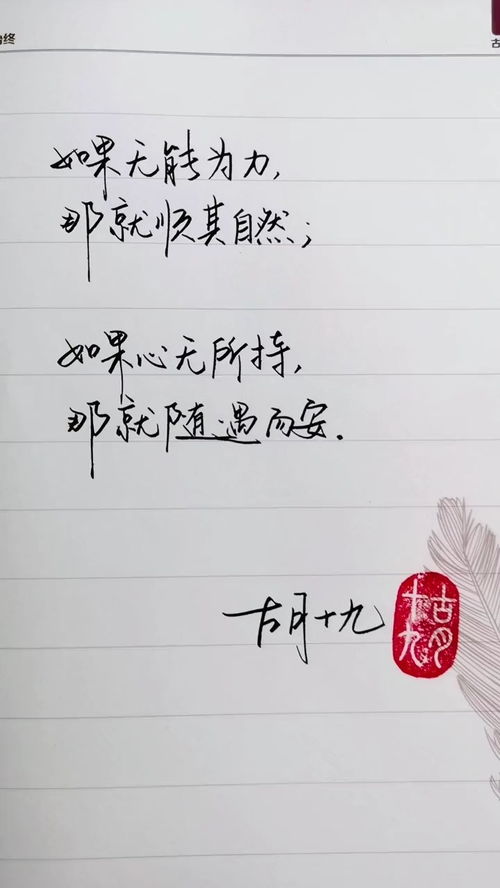 始终
古
如果无能为力，
那就顺其自然；
如果心无所持，
那就随遇而安．
胡十九
胡十九